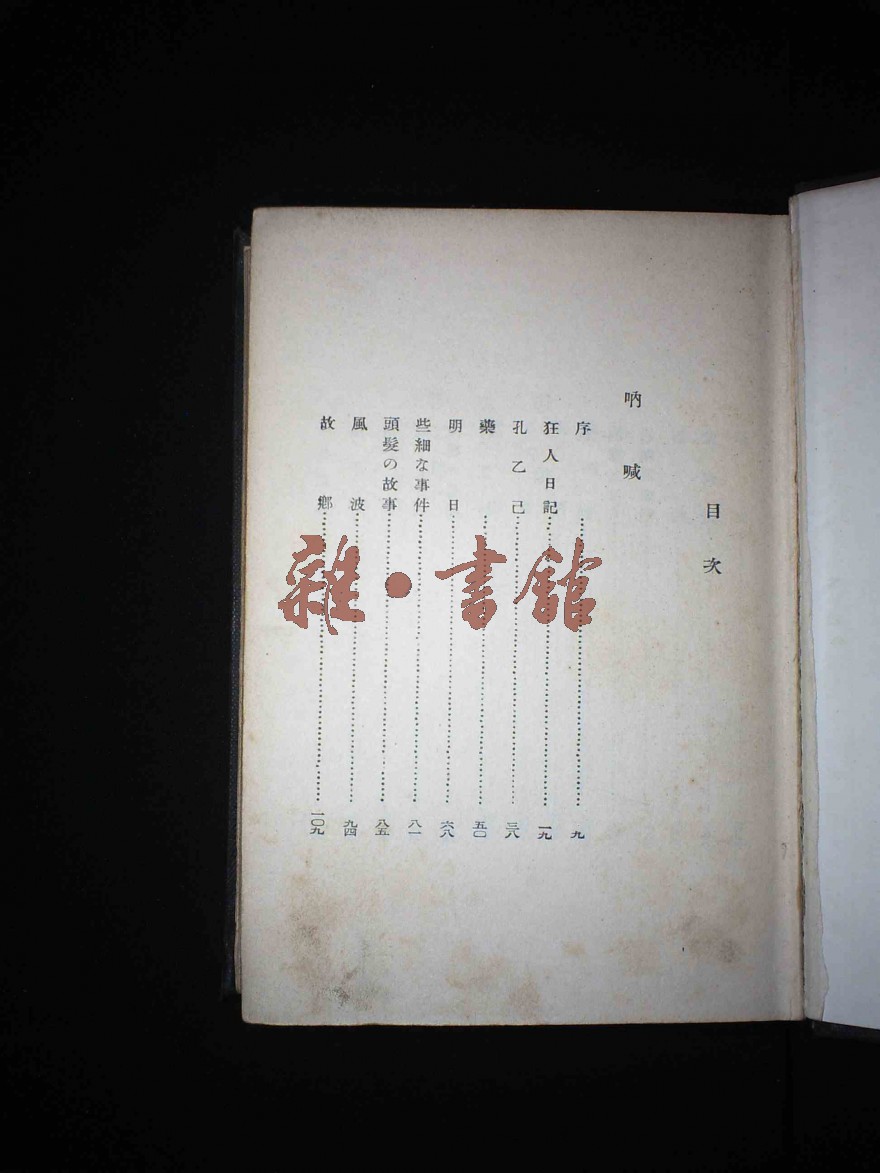 目次
吶喊
序……九
狂人日記……一九
孔乙己……三八
藥……五〇
明日……六八
些細な事件……八一
頭髮の故事……八五
風波……九四
故鄉……一〇九
雜·書館